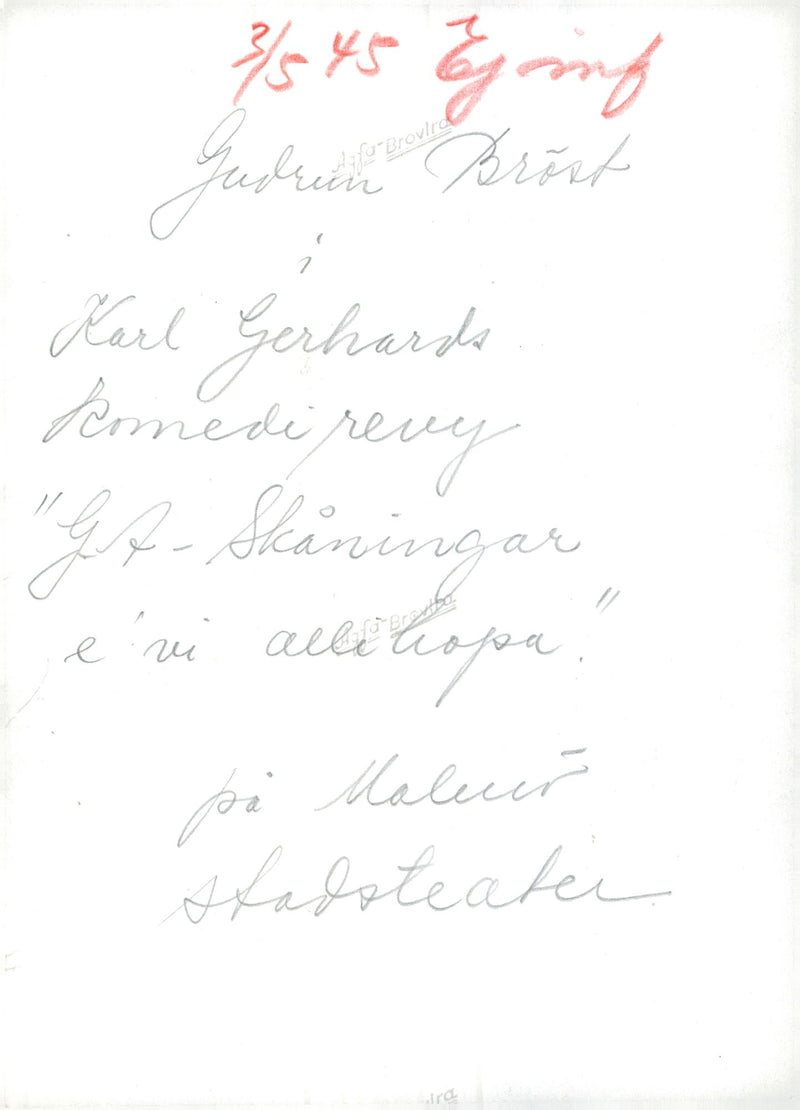 3/5 45 Ej inf
Agfa-Brovira
Gudrun Bröst
i
Karl Gerhards
komedirevy
"GA-Skåningar
Agfa-Brovira
e' vi allihopa."
på Malmö
stadsteater
ira